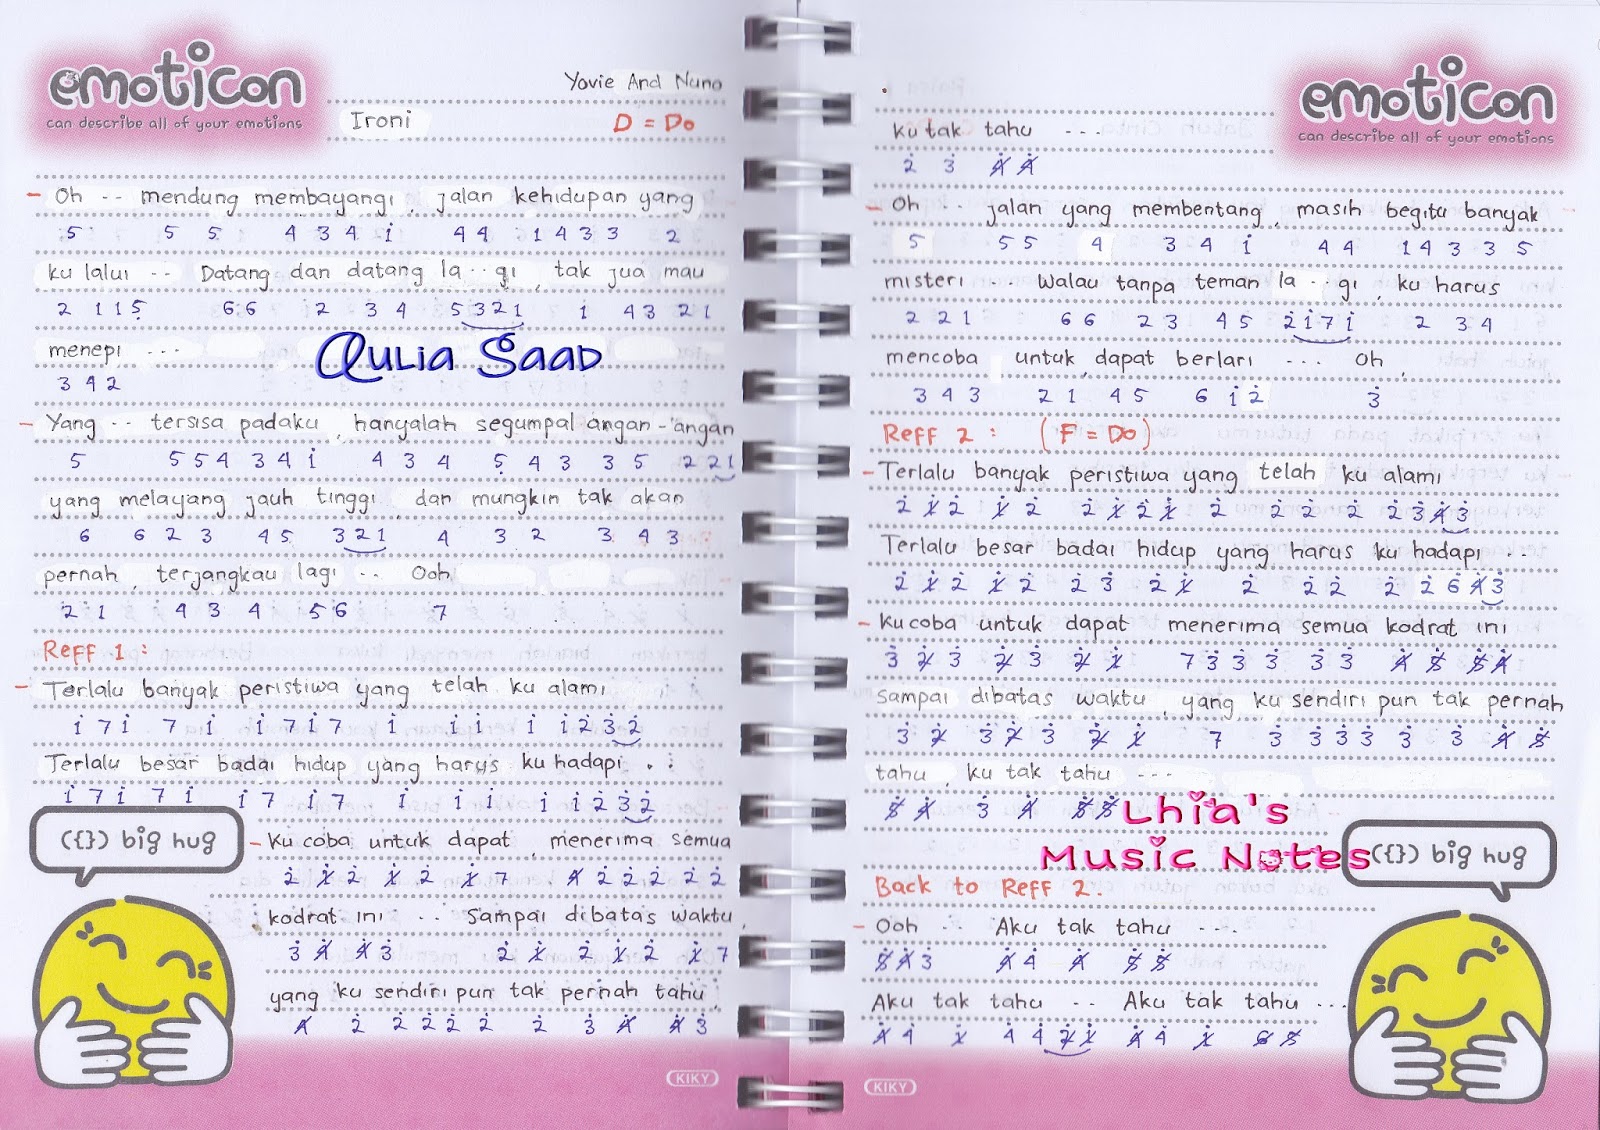 emoticon
can describe all of your emotions
Yovie And Nuno
Ironi D = Do
- Oh -- mendung membayangi, jalan kehidupan yang
5 5 5 4 3 4 i 4 4 1 4 3 3 2
ku lalui -- Datang dan datang la--gi, tak jua mau
2 1 1 5 6 6 2 3 4 5 3 2 1 1 4 3 2 1
menepi ---
3 4 2
Qulia Saad
- Yang -- tersisa padaku, hanyalah segumpal angan-angan
5 5 5 4 3 4 i 4 3 4 5 4 3 3 5 2 2 1
yang melayang jauh tinggi, dan mungkin tak akan
6 6 2 3 4 5 3 2 1 4 3 2 3 4 3
pernah, terjangkau lagi -- Ooh
2 1 4 3 4 5 6 7
Reff 1 :
- Terlalu banyak peristiwa yang telah ku alami
i 7 i 7 i i 7 i 7 i i i i i 2 3 2
Terlalu besar badai hidup yang harus ku hadapi . :
i 7 i 7 i i 7 i 7 i i i i i 2 3 2
({}) big hug
- Ku coba untuk dapat, menerima semua
2 1 2 1 2 1 7 4 2 2 2 2 2
kodrat ini -- Sampai dibatas waktu,
3 4 4 3 2 1 2 1 2 1 7
yang ku sendiri pun tak pernah tahu,
4 2 2 2 2 2 2 3 4 4 3
KIKY
emoticon
can describe all of your emotions
ku tak tahu ---
2 3 4 4
- Oh -- jalan yang membentang, masih begitu banyak
5 5 5 4 3 4 i 4 4 1 4 3 3 5
misteri --- Walau tanpa teman la--gi, ku harus
2 2 1 6 6 2 3 4 5 2 i 7 i 2 3 4
mencoba untuk dapat berlari --- Oh,
3 4 3 2 1 4 5 6 i 2 3
Reff 2 : (F = Do)
- Terlalu banyak peristiwa yang telah ku alami
2 1 2 1 2 2 1 2 1 2 2 2 2 2 3 4 3
Terlalu besar badai hidup yang harus ku hadapi --
2 1 2 1 2 2 3 2 1 2 2 2 2 2 6 4 3
- Ku coba untuk dapat, menerima semua kodrat ini
3 2 3 2 3 2 1 7 3 3 3 3 3 4 5 5 4
Sampai dibatas waktu, yang ku sendiri pun tak pernah
3 2 3 2 3 2 1 7 3 3 3 3 3 3 4 5
tahu, ku tak tahu ---
5 4 3 4 5 5
Lhia's
Music Notes
({}) big hug
Back to Reff 2.
- Ooh -- Aku tak tahu ---
5 4 3 4 4 4 5 5
Aku tak tahu -- Aku tak tahu ---
4 4 1 4 4 2 1 4 4 1 6 5
KIKY